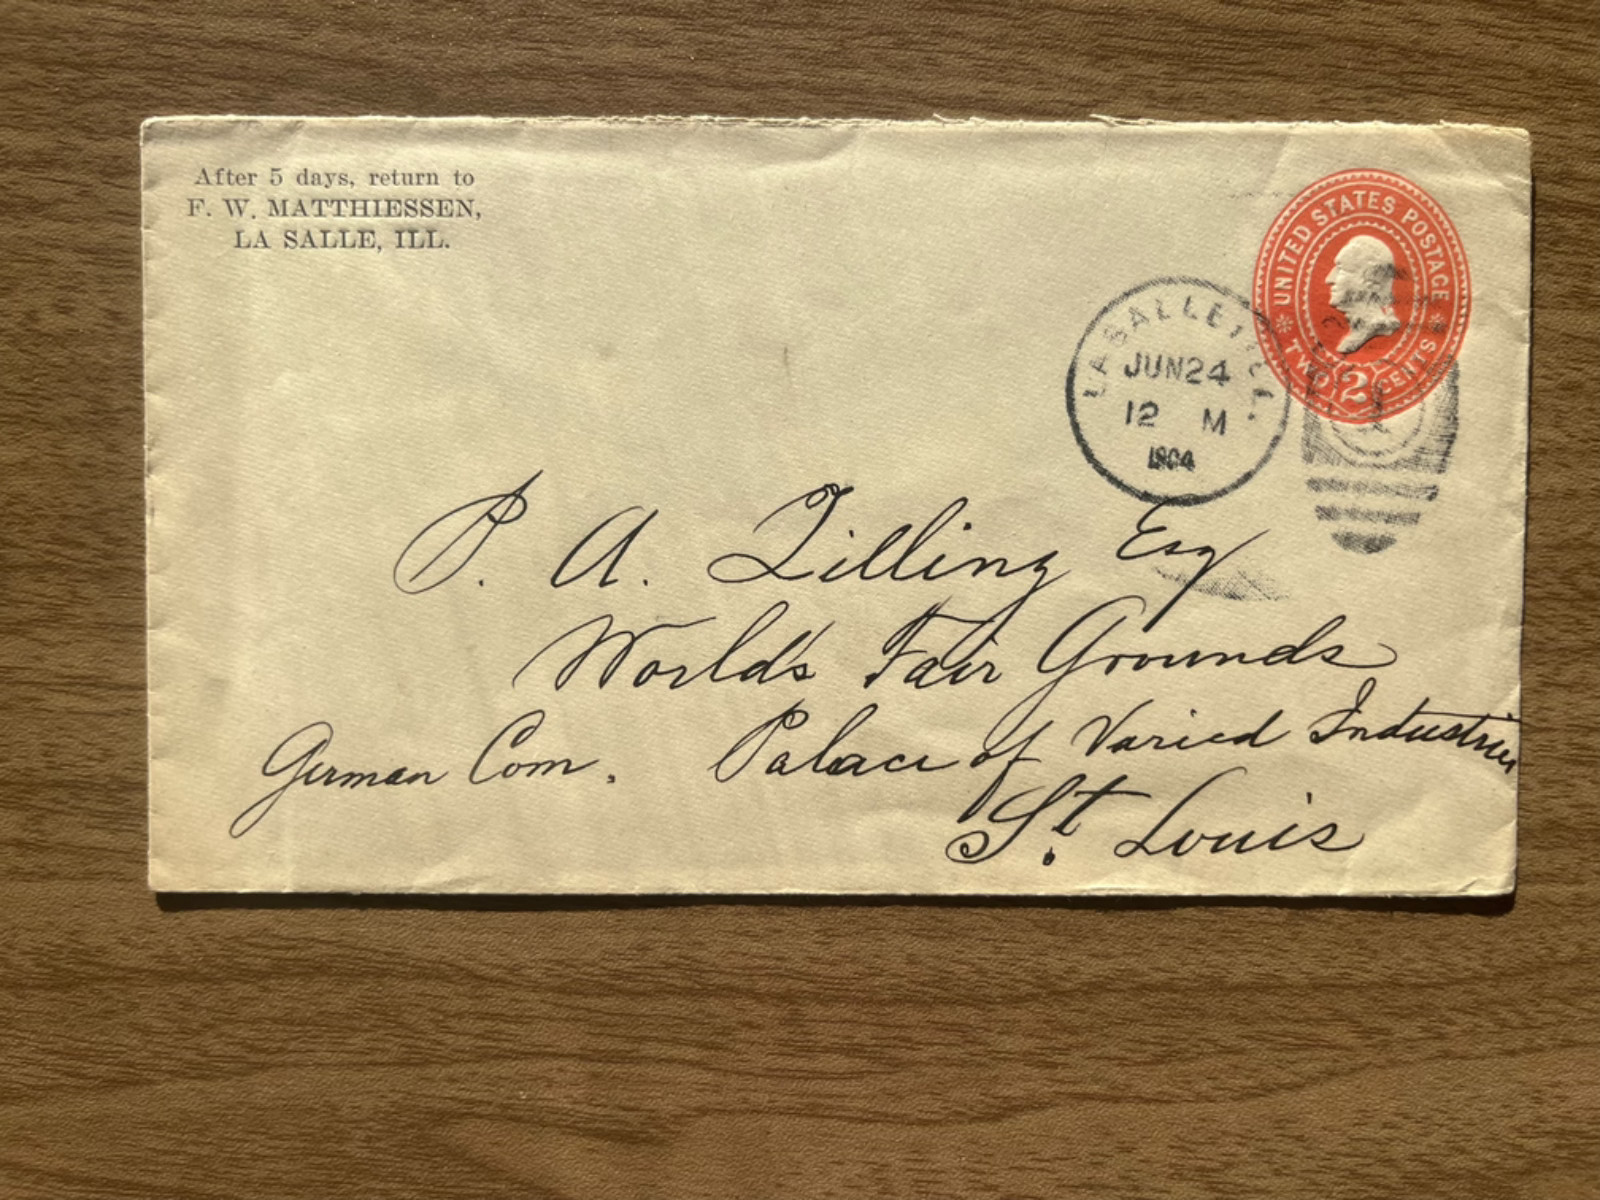 After 5 days, return to
F. W. MATTHIESSEN,
LA SALLE, ILL.
UNITED STATES POSTAGE
TWO 2 CENTS
LASALLE, ILL.
JUN 24
12 M
1904
P. A. Zilling Esq
World's Fair Grounds
German Com. Palace of Varied Industries
St. Louis